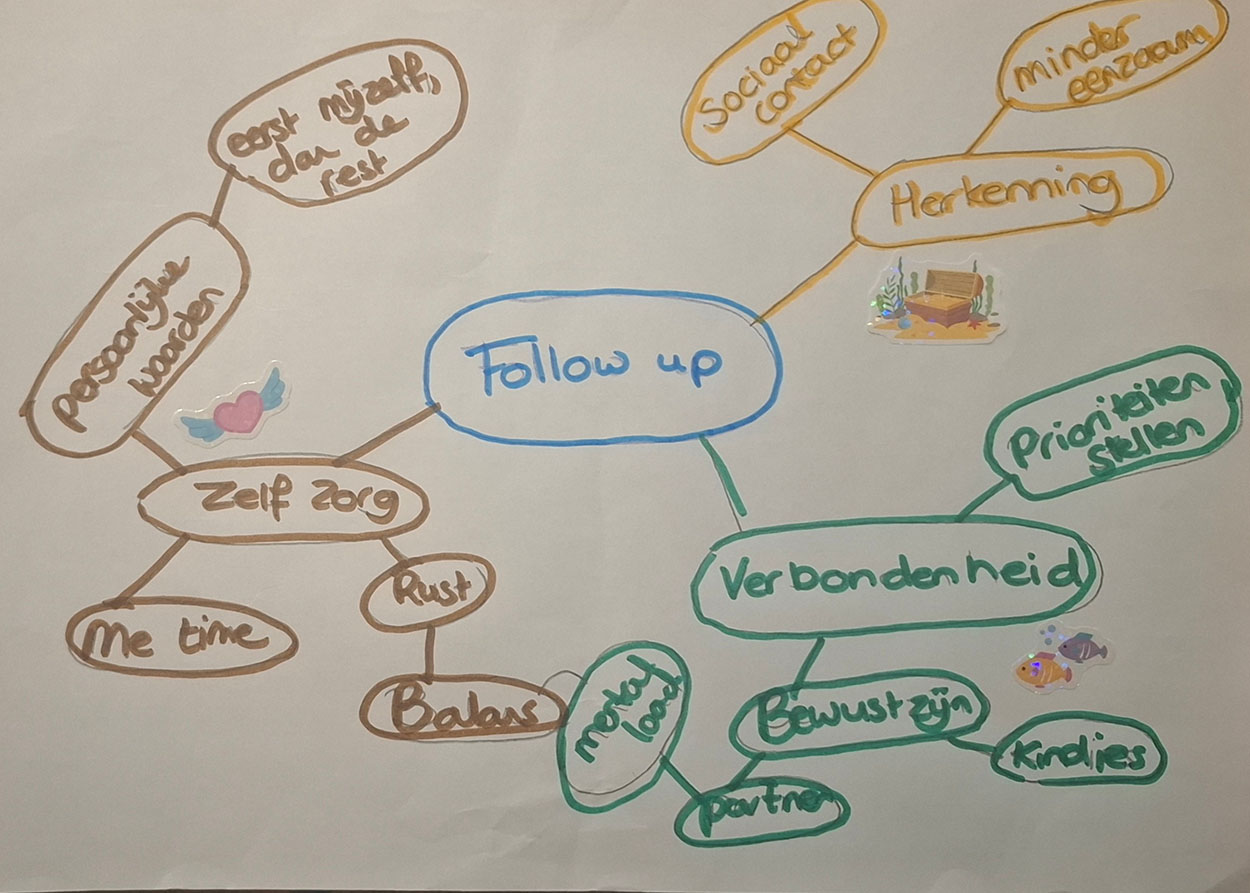 Sociaal
contact
minder
eenzaam
eerst mijzelf,
dan de
rest
Herkenning
persoonlijke
waarden
Follow up
Prioriteiten
stellen
Zelf zorg
Verbondenheid
Rust
Me time
mental
load
Balans
Bewustzijn
Kindjes
partner